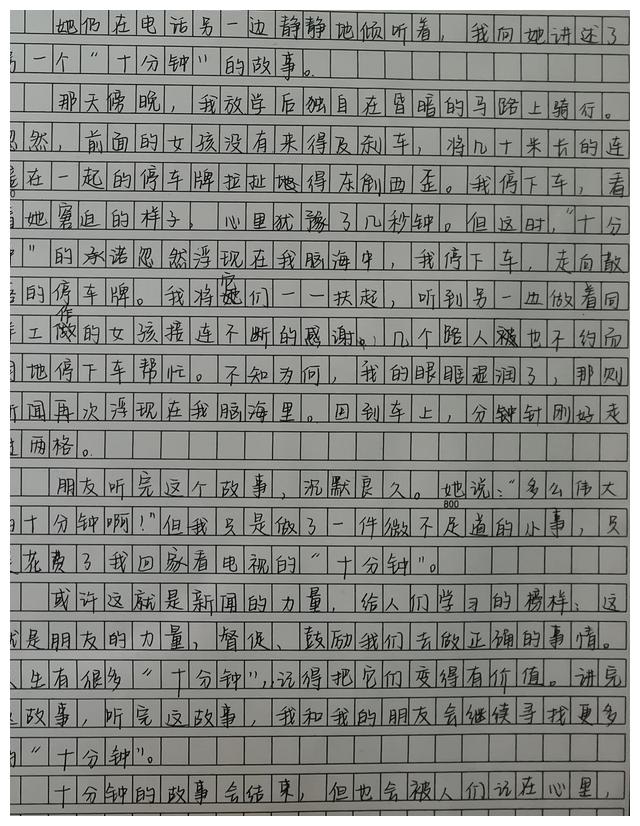 她仍在电话另一边静静地倾听着，我向她讲述了
另一个“十分钟”的故事。
那天傍晚，我放学后独自在昏暗的马路上骑行。
忽然，前面的女孩没有来得及刹车，将几十米长的连
在一起的停车牌拉扯地得东倒西歪。我停下车，看
着她窘迫的样子，心里犹豫了几秒钟。但这时，“十分
钟”的承诺忽然浮现在我脑海中，我停下车，走向散
的停车牌。我将它们一一扶起，听到另一边做着同
样工作的女孩接连不断的感谢。几个路人被也不约而
同地停下车帮忙。不知为何，我的眼眶湿润了，那则
新闻再次浮现在我脑海里。回到车上，分钟针刚好走
过两格。
朋友听完这个故事，沉默良久。她说：“多么伟大
800
的十分钟啊！”但我只是做了一件微不足道的小事，只
是花费了我回家看电视的“十分钟”。
或许这就是新闻的力量，给人们学习的榜样；这
就是朋友的力量，督促、鼓励我们去做正确的事情。
人生有很多“十分钟”，记得把它们变得有价值。讲完
这故事，听完这故事，我和我的朋友会继续寻找更多
的“十分钟”。
十分钟的故事会结束，但也会被人们记在心里，